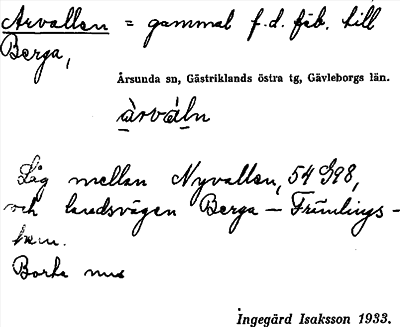 Arvallen = gammal f.d. fäb. till
Berga,
Årsunda sn, Gästriklands östra tg, Gävleborgs län.
àrvàln
Låg mellan Nyvallen, 54 G98,
och landsvägen Berga — Främlings-
hem.
Borta nu
Ingegärd Isaksson 1933.